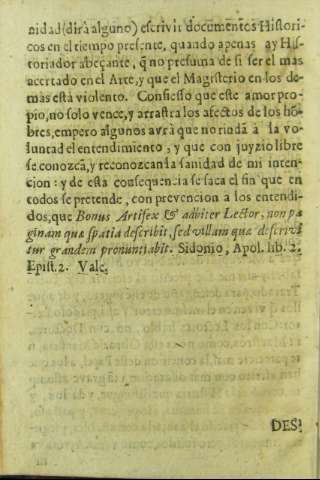 nidad (dirà alguno) escrivir documentos Histori-
cos en el tiempo presente, quando apenas ay His-
toriador abeçante, q̃ no presuma de si ser el mas
acertado en el Arte, y que el Magisterio en los de-
mas està violento. Confiesso que este amor pro-
pio, no solo vence, y arrastra los afectos de los hõ-
bres, empero algunos avrà que no rindã à la vo-
luntad el entendimiento, y que con juyzio libre
se conozcã, y reconozcan la sanidad de mi inten-
cion: y de esta consequencia se saca el fin que en
todos se pretende, con prevencion a los entendi-
dos, que Bonus Artifex & adviter Lector, non pa
ginam quæ spatia describit, sed villam quæ descrivi
tur grandem pronuntiabit. Sidonio, Apol. lib. 2.
Epist. 2. Vale.
DES-